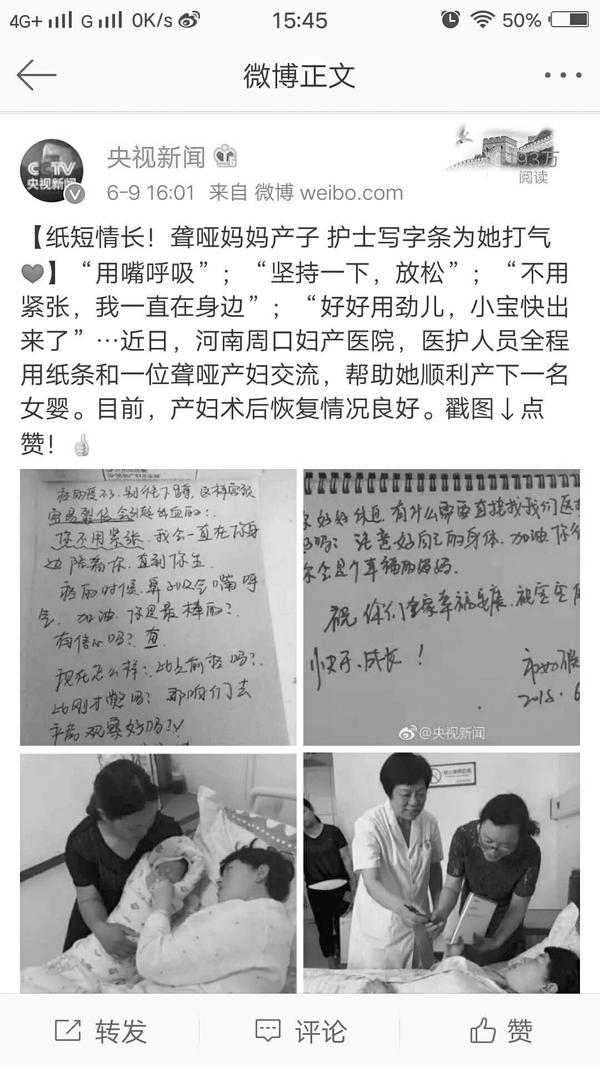 4G+ G 0K/s 15:45 50%
微博正文
央视新闻
6-9 16:01 来自 微博 weibo.com
93万
阅读
CCTV
央视新闻
【纸短情长！聋哑妈妈产子 护士写字条为她打气
❤】“用嘴呼吸”；“坚持一下，放松”；“不用
紧张，我一直在身边”；“好好用劲儿，小宝快出
来了”…近日，河南周口妇产医院，医护人员全程
用纸条和一位聋哑产妇交流，帮助她顺利产下一名
女婴。目前，产妇术后恢复情况良好。戳图↓点
赞！👍
您不用紧张，我会一直在你身
边陪着你，直到你生
疼的时候鼻吸气嘴呼
气，加油，你是最棒的！
有信心吗？
现在怎么样：比之前疼吗？
观察好吗？
好好休息，有什么需要直接找我们医
好吗？注意好自己的身体，加油
个幸福的妈妈.
祝你们全家幸福安康，祝宝宝
快乐成长！
2018.6
@央视新闻
转发 评论 赞